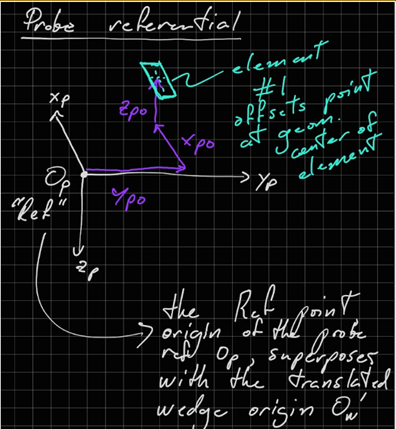 Probe referential
element
#1
offsets point
at geom.
center of
element
xp
zpo
xpo
Op
yp
ypo
"Ref"
zp
the Ref point,
origin of the probe
ref Op, superposes
with the translated
wedge origin Ow'